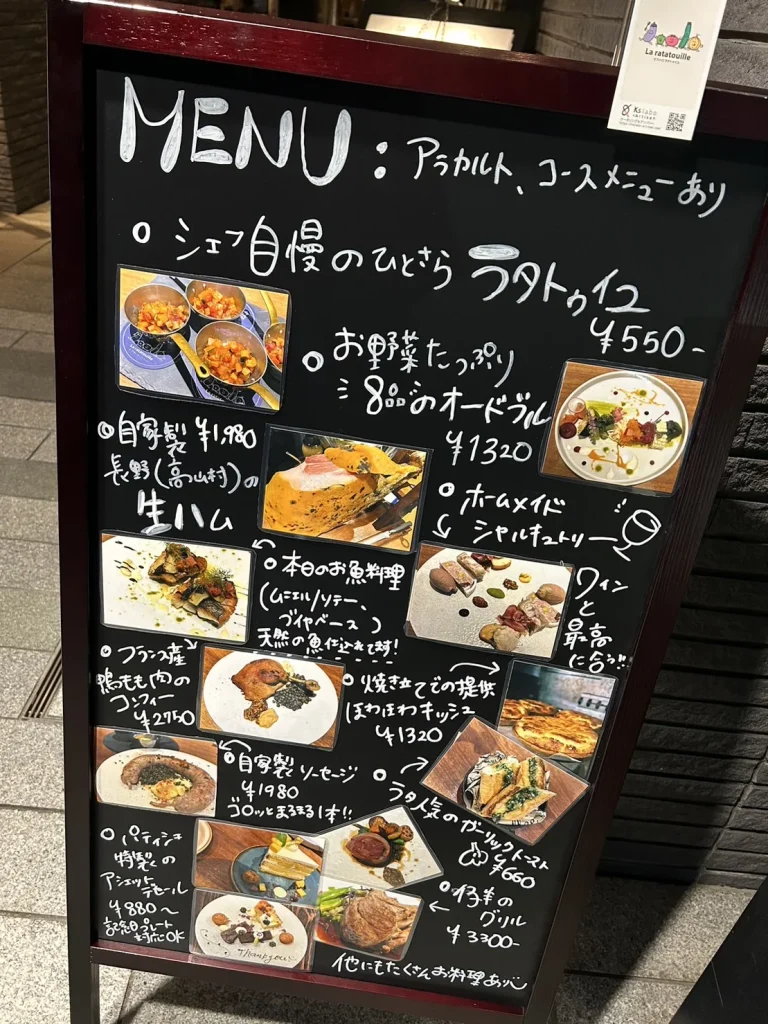 La ratatouille
Kslabo
MENU : アラカルト、コースメニューあり
シェフ自慢のひとさら ラタトゥイユ
¥550-
お野菜たっぷり
8品のオードブル
¥1320
自家製 ¥1,980
長野(高山村)の
生ハム
ホームメイド
シャルキュトリー
ワイン
と
最高
に合う!!
本日のお魚料理
(ムニエル/ソテー、
ブイヤベース)
天然の魚仕込れてます!
フランス産
鴨もも肉の
コンフィー
¥2750
焼き立てでの提供
ほわほわキッシュ
¥1320
自家製 ソーセージ
¥1980
ゴロッとまるまる1本!!
ラタ人気のガーリックトースト
¥660
パティシエ
特製の
アシェット
デセール
¥880〜
記念日プレート
対応OK
Thankyou
仔羊の
グリル
¥3300-
他にもたくさんお料理あり